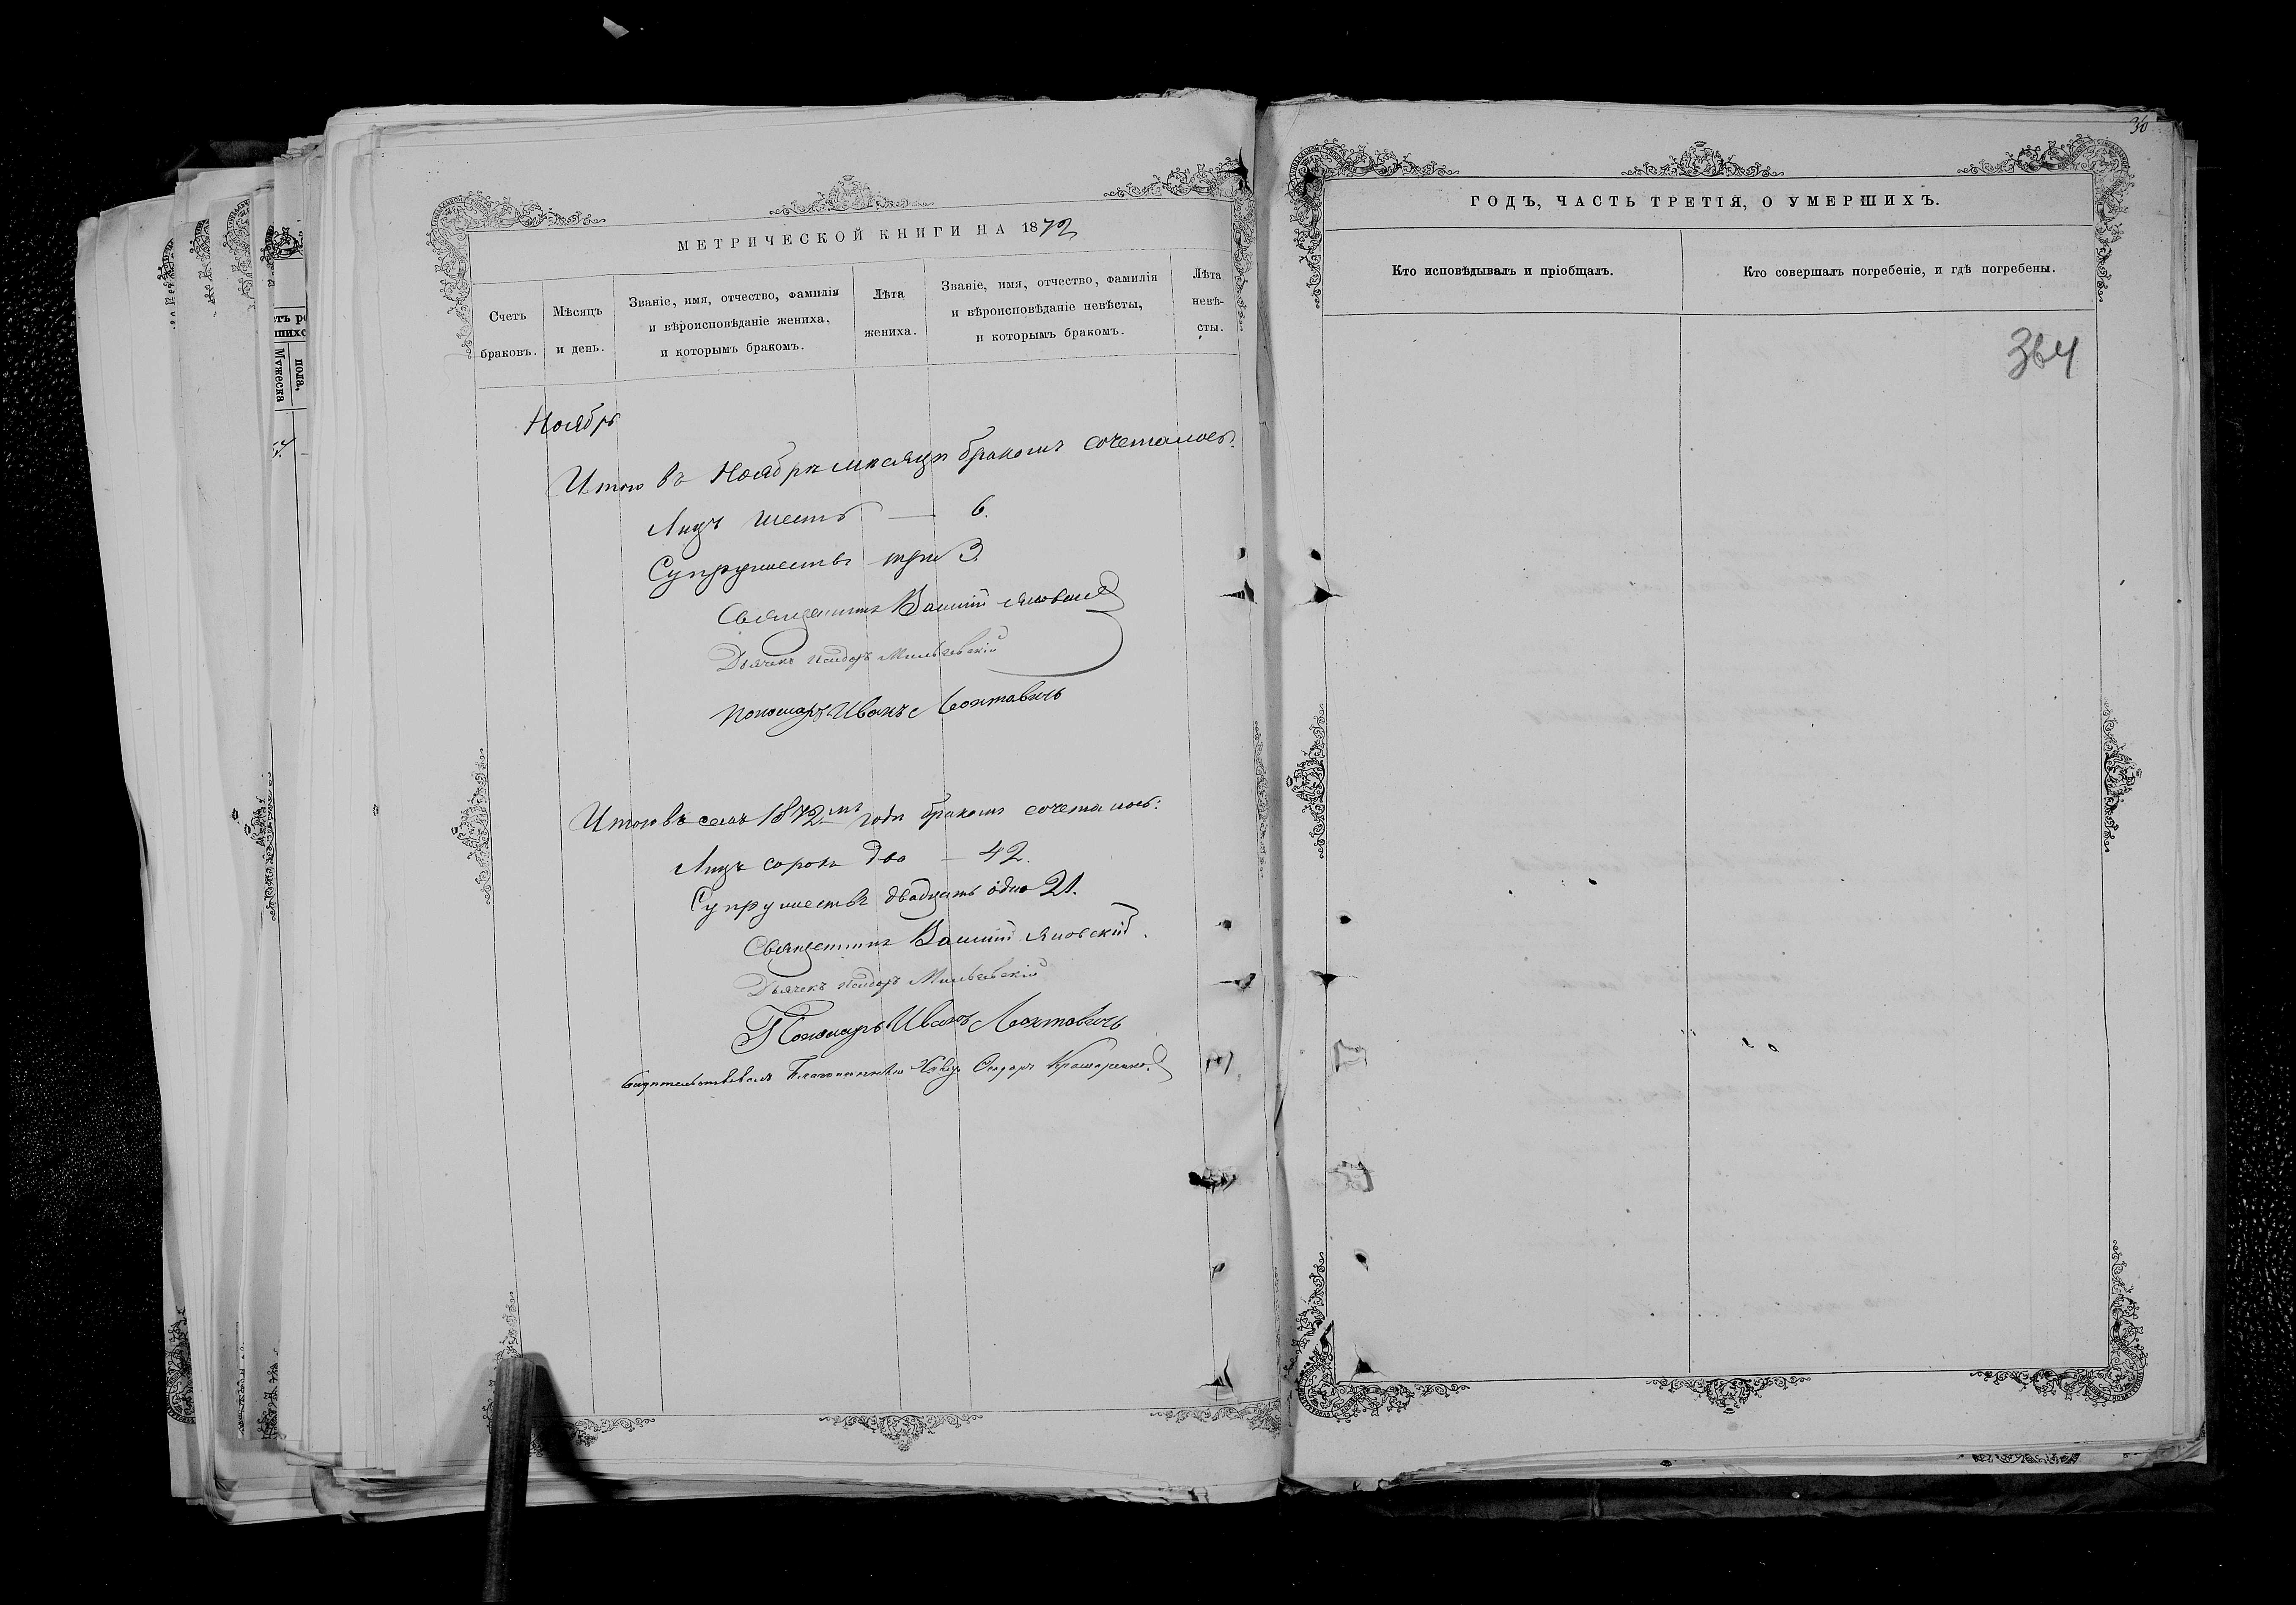 МЕТРИЧЕСКОЙ КНИГИ НА 1872
Счетъ браковъ.
Мѣсяцъ и день.
Званіе, имя, отчество, фамилія и вѣроисповѣданіе жениха, и которымъ бракомъ.
Лѣта жениха.
Званіе, имя, отчество, фамилія и вѣроисповѣданіе невѣсты, и которымъ бракомъ.
Лѣта невѣ-сты.
Ноябрь
Итого въ Ноябрѣ мѣсяцѣ бракомъ сочеталось:
Лицъ шесть — 6.
Супружествъ три 3.
Священникъ Василій Яновскій
Дьячекъ Исидоръ
Пономарь Иванъ Лохтавичь
Итого въ семъ 1872мъ годѣ бракомъ сочеталось:
Лицъ сорокъ два — 42.
Супружествъ двадцать одно 21.
Священникъ Василій Яновскій.
Дьячекъ Исидоръ
Пономарь Иванъ Лохтавичь
36
ГОДЪ, ЧАСТЬ ТРЕТІЯ, О УМЕРШИХЪ.
Кто исповѣдывалъ и пріобщалъ.
Кто совершалъ погребеніе, и гдѣ погребены.
364